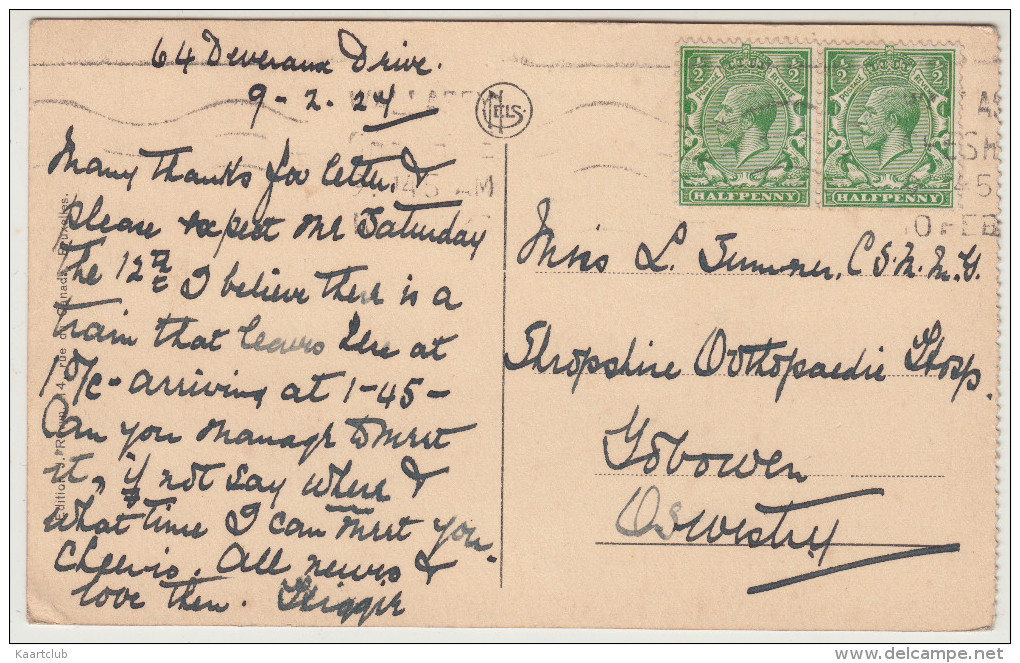 64 Deveraux Drive.
9-2.24
Many thanks for letter, &
please expect me Saturday
the 12th I believe there is a
train that leaves here at
1 o/c - arriving at 1-45-
Can you manage to meet
it, if not say where &
what time I can meet you.
Cheerio. All news &
love then.
NELS
½ ½
POSTAGE REVENUE POSTAGE REVENUE
HALFPENNY HALFPENNY
45 AM
10 FEB
Miss L. Sumner. C.S.M.M.G.
Shropshire Orthopaedic Hosp.
Gobowen
Oswestry
Kaartclub
delcampe.net